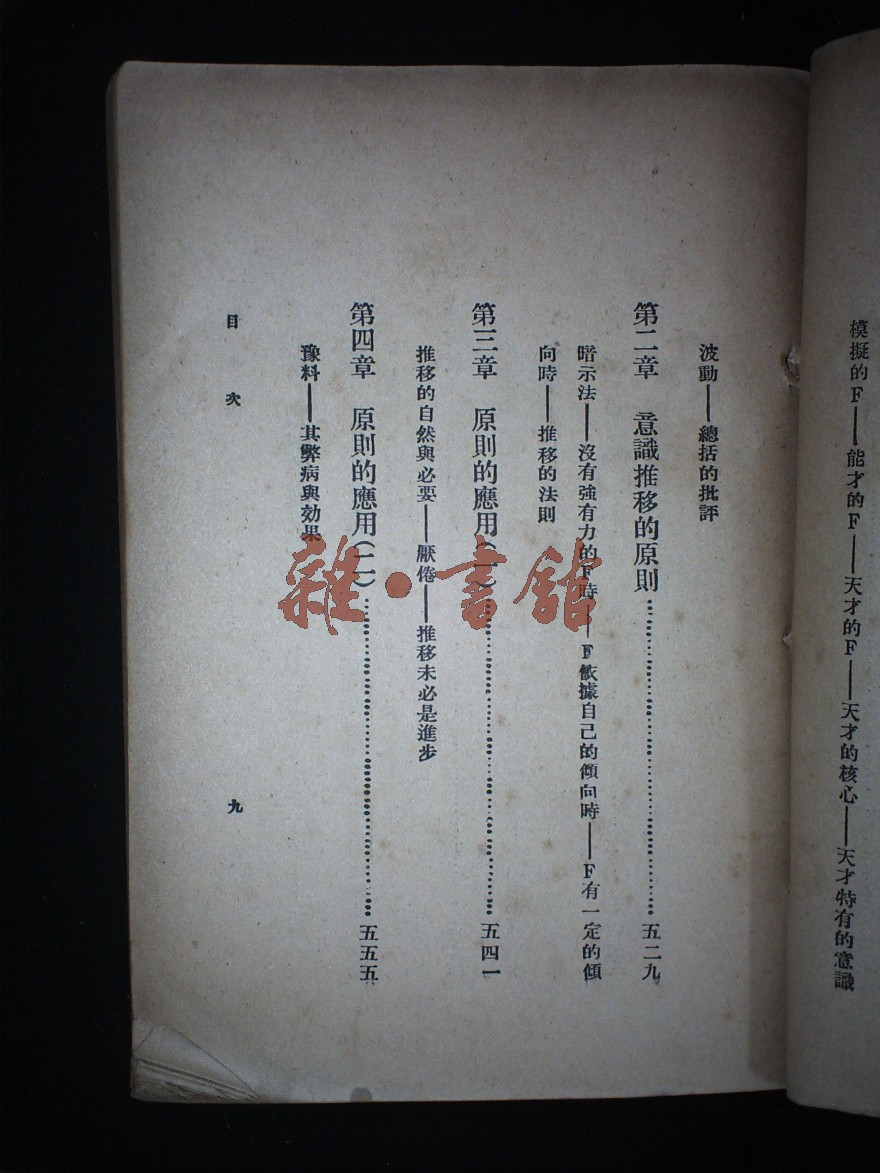 模擬的F——能才的F——天才的F——天才的核心——天才特有的意識
波動——總括的批評
第二章　意識推移的原則…………五二九
暗示法——沒有強有力的F時——F依據自己的傾向時——F有一定的傾
向時——推移的法則
第三章　原則的應用(一)…………五四一
推移的自然與必要——厭倦——推移未必是進步
第四章　原則的應用(二)…………五五五
豫料——其弊病與効果
目　次
九
雜·書館